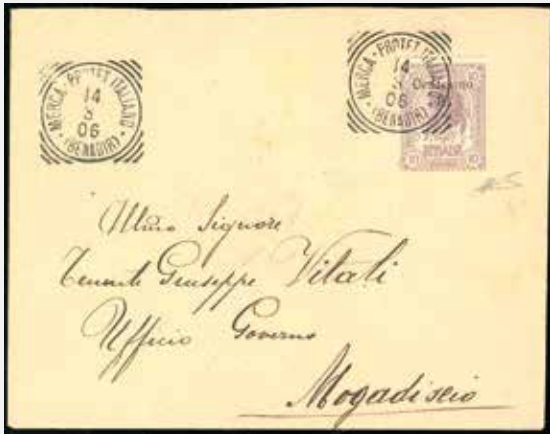 MERCA · PROTET ITALIANO · (BENADIR) ·
14
3
06
MERCA · PROTET ITALIANO · (BENADIR) ·
14
06
10
BENADIR
10 10
Illmo Signore
Tenente Giuseppe Vitali
Ufficio Governo
Mogadiscio